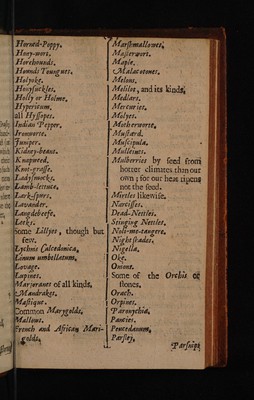 Horned-Poppy.
Hony-wort.
Horehounds.
Hounds Toungues.
Holyoke.
Honysuckles.
Holly or Holme.
Hypericum.
all Hyssopes.
Indian Pepper.
Ironworts.
Juniper.
Kidney-beans.
Knapweed.
Knot-grasse.
Ladysmocks.
Lamb-lettuce.
Lark-spurs.
Lavander.
Langdebeefe.
Leeks.
Some Lillyes, though but
few.
Lychnis Calcedonica,
Linum umbellatum,
Lovage.
Lupines.
Marjorans of all kinds,
Mandrakes.
Mastique.
Common Marygolds,
Mallows.
French and African Mari-
golds,
Marshmallowes,
Masterwort.
Maple.
Malacotones.
Melons.
Melilot, and its kinds,
Medlars.
Mercuries.
Molyes.
Motherworts.
Mustard.
Muscipula.
Mulleines.
Mulberries by seed from
hotter climates than our
own; for our heat ripens
not the seed.
Mirtles likewise.
Narcisses.
Dead-Nettles.
Stinging Nettles.
Noli-me-tangere.
Nightshades.
Nigella.
Oke.
Onions.
Some of the Orchis or
stones.
Orach.
Orpines.
Paronychia.
Pancies.
Peucedanum,
Parsley,
Parsnips